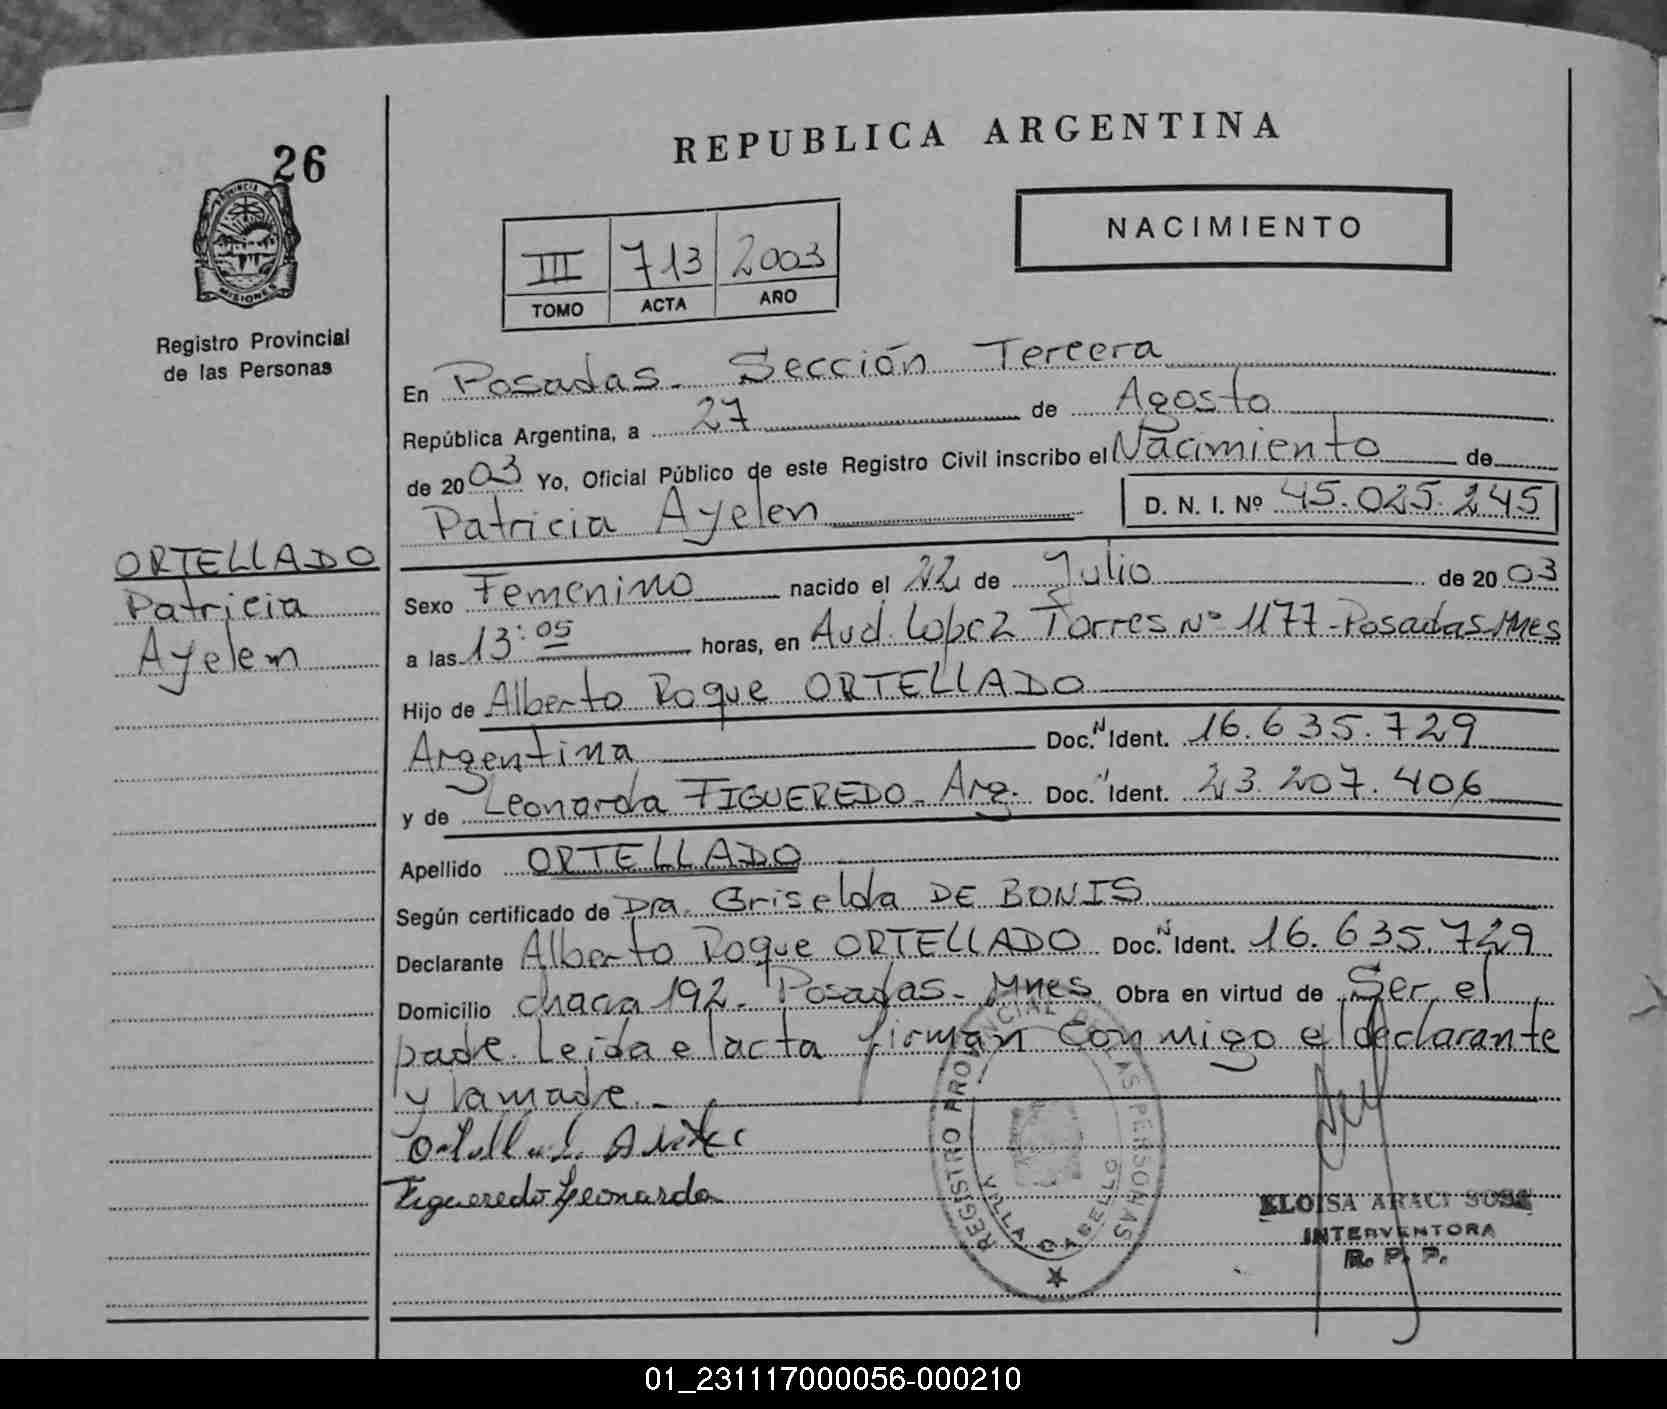 REPUBLICA ARGENTINA
26
PROVINCIA DE
MISIONES
Registro Provincial
de las Personas
NACIMIENTO
III 713 2003
TOMO ACTA AÑO
En Posadas - Sección Tercera
República Argentina, a 27 de Agosto
de 2003 Yo, Oficial Público de este Registro Civil inscribo el Nacimiento de
Patricia Ayelen D. N. I. Nº 45.025.245
ORTELLADO
Patricia
Ayelen
Sexo Femenino nacido el 22 de Julio de 2003
a las 13:05 horas, en Avd. Lopez Torres Nº 1177-Posadas Mnes
Hijo de Alberto Roque ORTELLADO
Argentina Doc. N Ident. 16.635.729
y de Leonarda FIGUEREDO - Arg. Doc. Ident. 23.207.406
Apellido ORTELLADO
Según certificado de Dra. Griselda DE BONIS
Declarante Alberto Roque ORTELLADO Doc. N Ident. 16.635.729
Domicilio chacra 192 - Posadas - Mnes Obra en virtud de Ser el
padre. Leida el acta firman conmigo el declarante
y la madre.-
Figueredo Leonarda
REGISTRO PROVINCIAL DE LAS PERSONAS
VILLA CABELLO
ELOISA ARACI SOSA
INTERVENTORA
R. P. P.
01_231117000056-000210